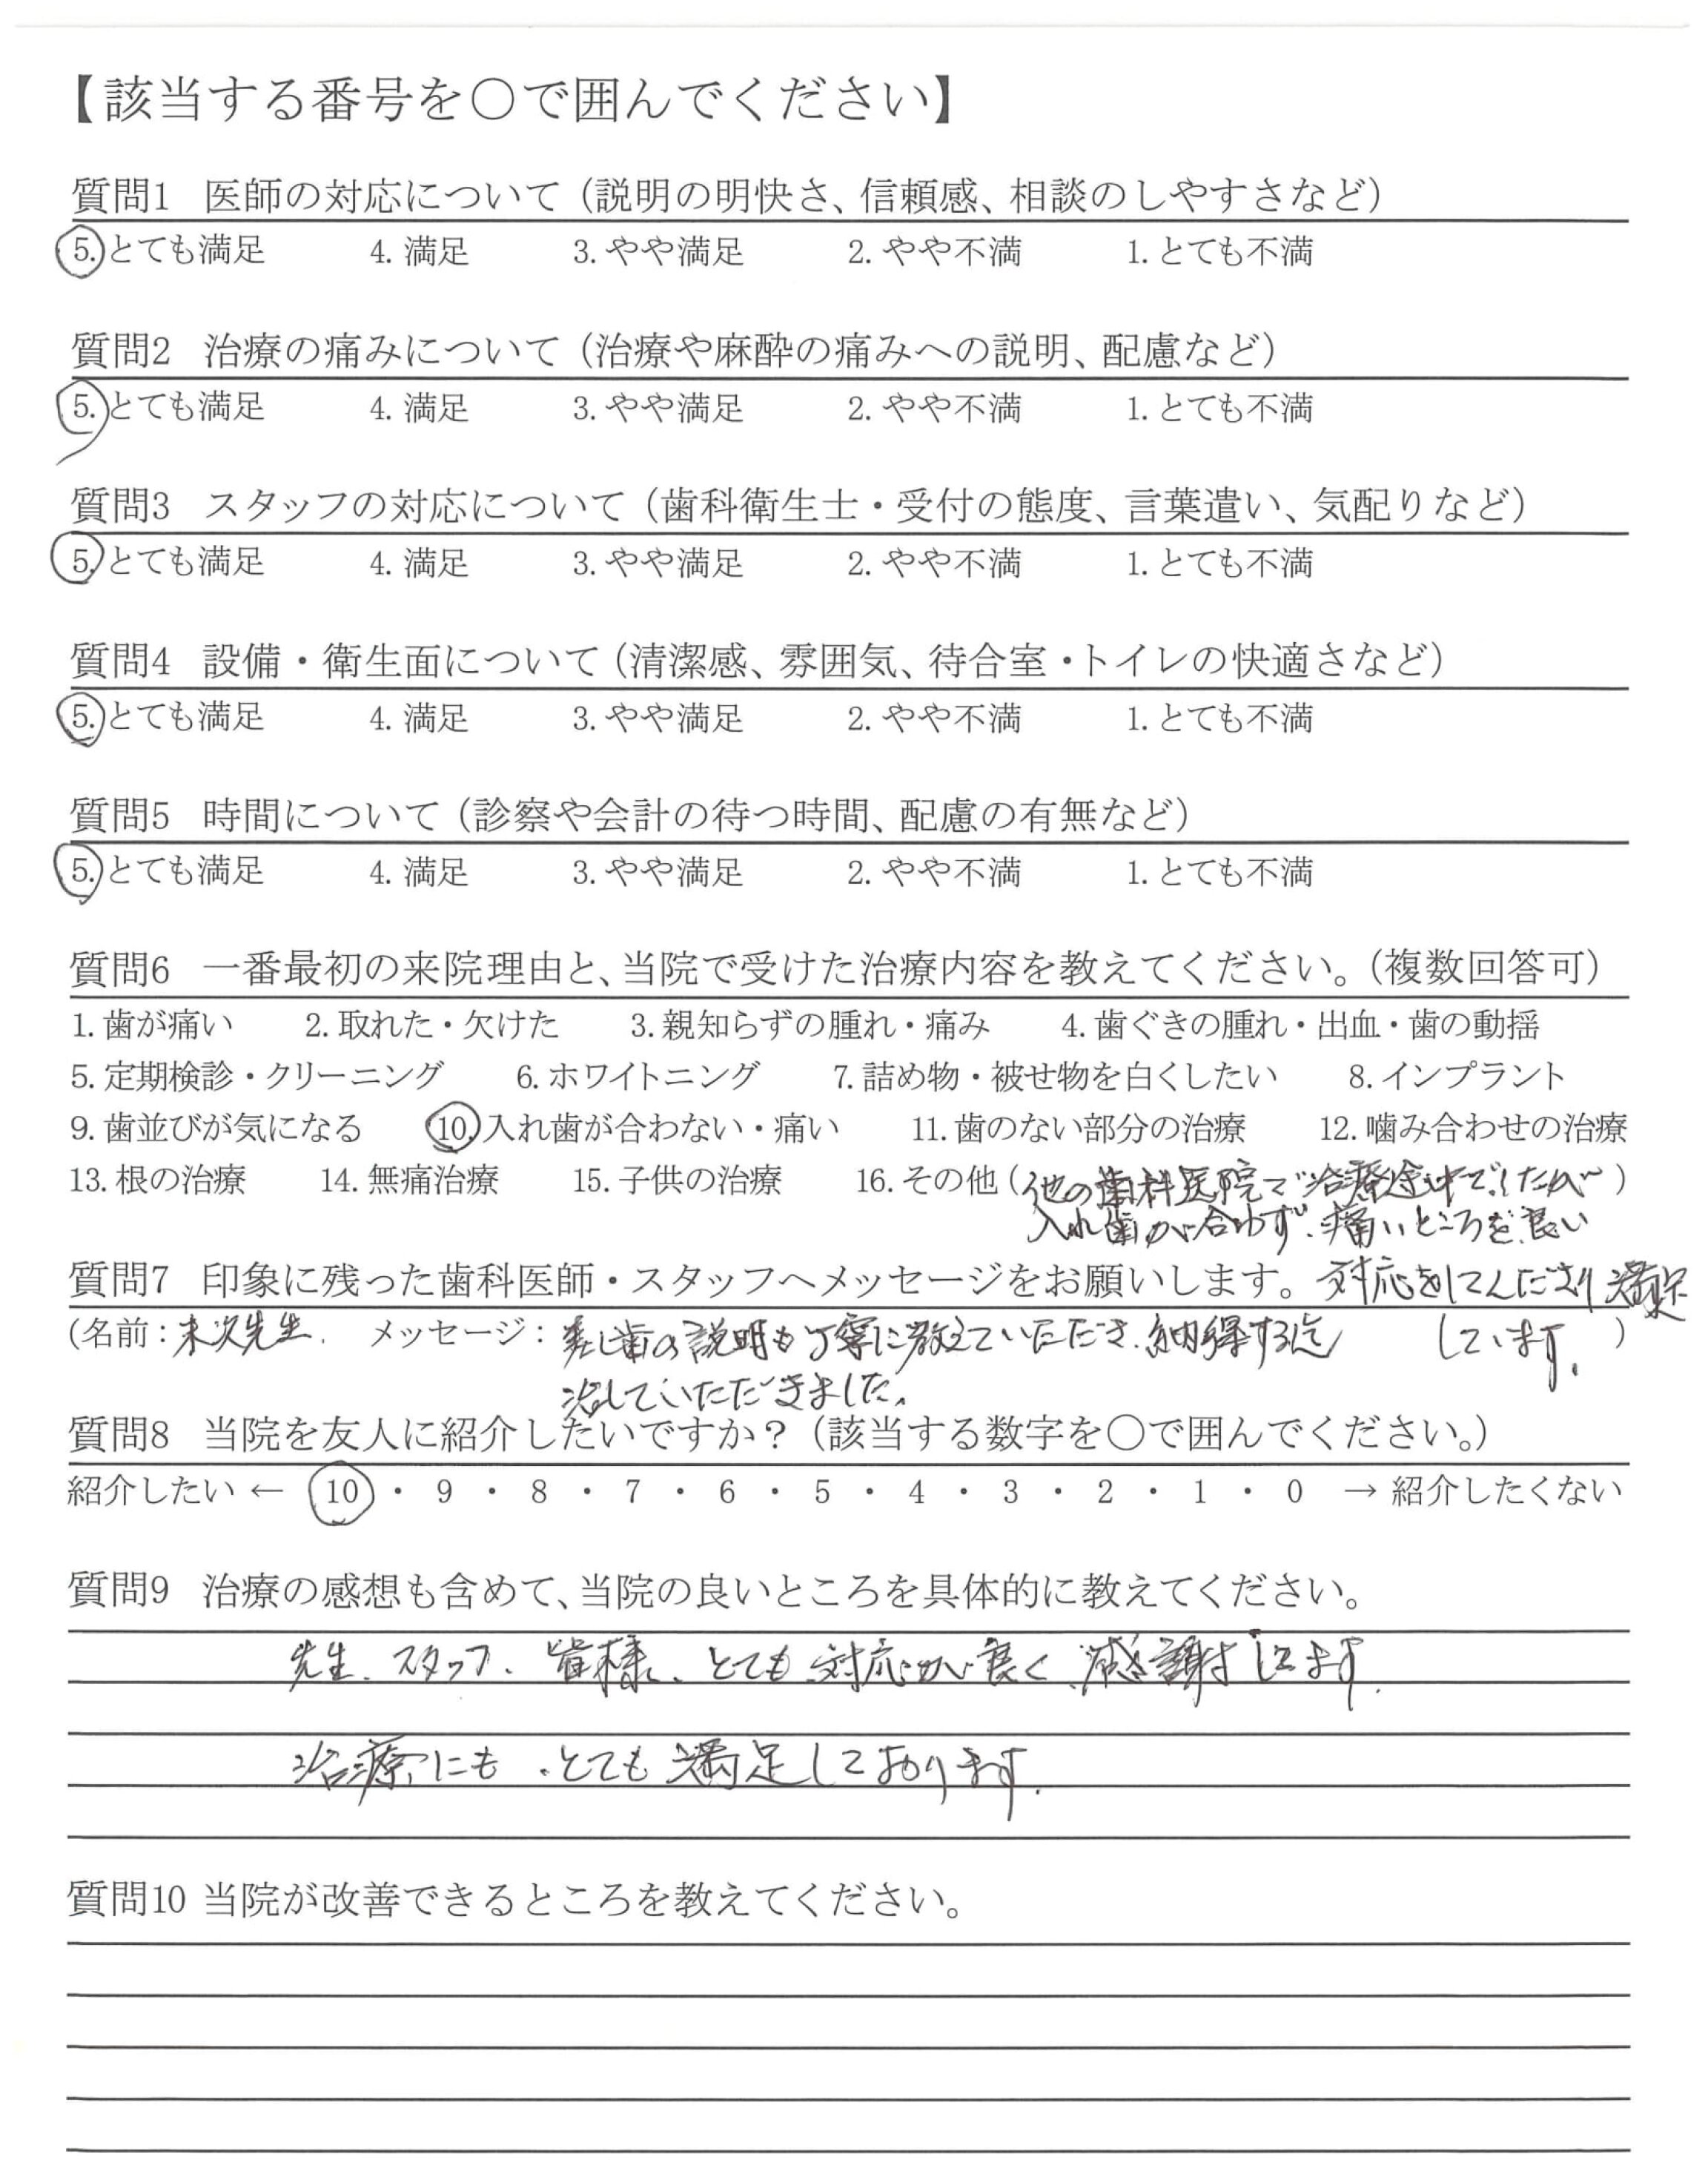 【該当する番号を〇で囲んでください】
質問1 医師の対応について（説明の明快さ、信頼感、相談のしやすさなど）
5. とても満足 4. 満足 3. やや満足 2. やや不満 1. とても不満
質問2 治療の痛みについて（治療や麻酔の痛みへの説明、配慮など）
5. とても満足 4. 満足 3. やや満足 2. やや不満 1. とても不満
質問3 スタッフの対応について（歯科衛生士・受付の態度、言葉遣い、気配りなど）
5. とても満足 4. 満足 3. やや満足 2. やや不満 1. とても不満
質問4 設備・衛生面について（清潔感、雰囲気、待合室・トイレの快適さなど）
5. とても満足 4. 満足 3. やや満足 2. やや不満 1. とても不満
質問5 時間について（診察や会計の待つ時間、配慮の有無など）
5. とても満足 4. 満足 3. やや満足 2. やや不満 1. とても不満
質問6 一番最初の来院理由と、当院で受けた治療内容を教えてください。（複数回答可）
1. 歯が痛い 2. 取れた・欠けた 3. 親知らずの腫れ・痛み 4. 歯ぐきの腫れ・出血・歯の動揺
5. 定期検診・クリーニング 6. ホワイトニング 7. 詰め物・被せ物を白くしたい 8. インプラント
9. 歯並びが気になる 10. 入れ歯が合わない・痛い 11. 歯のない部分の治療 12. 噛み合わせの治療
13. 根の治療 14. 無痛治療 15. 子供の治療 16. その他（他の歯科医院で治療途中でしたが）
入れ歯が合わず、痛いところを良い
対応をしてくださり満足
しています。
質問7 印象に残った歯科医師・スタッフへメッセージをお願いします。
（名前：末次先生. メッセージ：差し歯の説明も丁寧に教えていただき、納得する迄）
治していただきました。
質問8 当院を友人に紹介したいですか？（該当する数字を〇で囲んでください。）
紹介したい ← 10 ・ 9 ・ 8 ・ 7 ・ 6 ・ 5 ・ 4 ・ 3 ・ 2 ・ 1 ・ 0 → 紹介したくない
質問9 治療の感想も含めて、当院の良いところを具体的に教えてください。
先生、スタッフ、皆様、とても対応が良く、感謝してます.
治療にも、とても満足しております.
質問10 当院が改善できるところを教えてください。